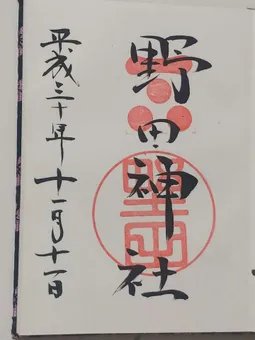 野田神社
平成三十年十一月十一日